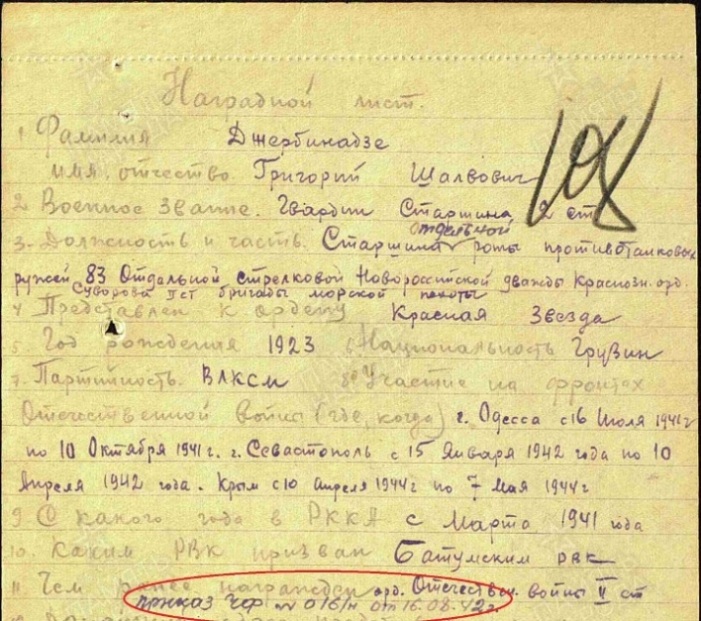 Наградной лист.
108
1 Фамилия Джербинадзе
имя. отчество. Григорий Шалвович
2. Военное звание. Гвардии Старшина 2 ст
отдельной
3. Должность и часть. Старшина роты противотанковых
ружей 83 Отдельной стрелковой Новороссийской дважды Краснозн. орд.
Суворова II ст бригады морской пехоты
4 Представлен к ордену Красная Звезда
5 Год рождения 1923 6 Национальность Грузин
7. Партийность. ВЛКСМ 8. Участие на фронтах
Отечественной войны (где, когда) г. Одесса с 16 Июля 1941г
по 10 Октября 1941г. г. Севастополь с 15 Января 1942 года по 10
Апреля 1942 года. Крым с 10 апреля 1944г по 7 Мая 1944г
9 С какого года в РККА с Марта 1941 года
10. Каким РВК призван Батумским РВК
11 Чем ранее награжден орд. Отечествен. войны II ст
приказ ЧФ № 016/н от 16.08.42г.